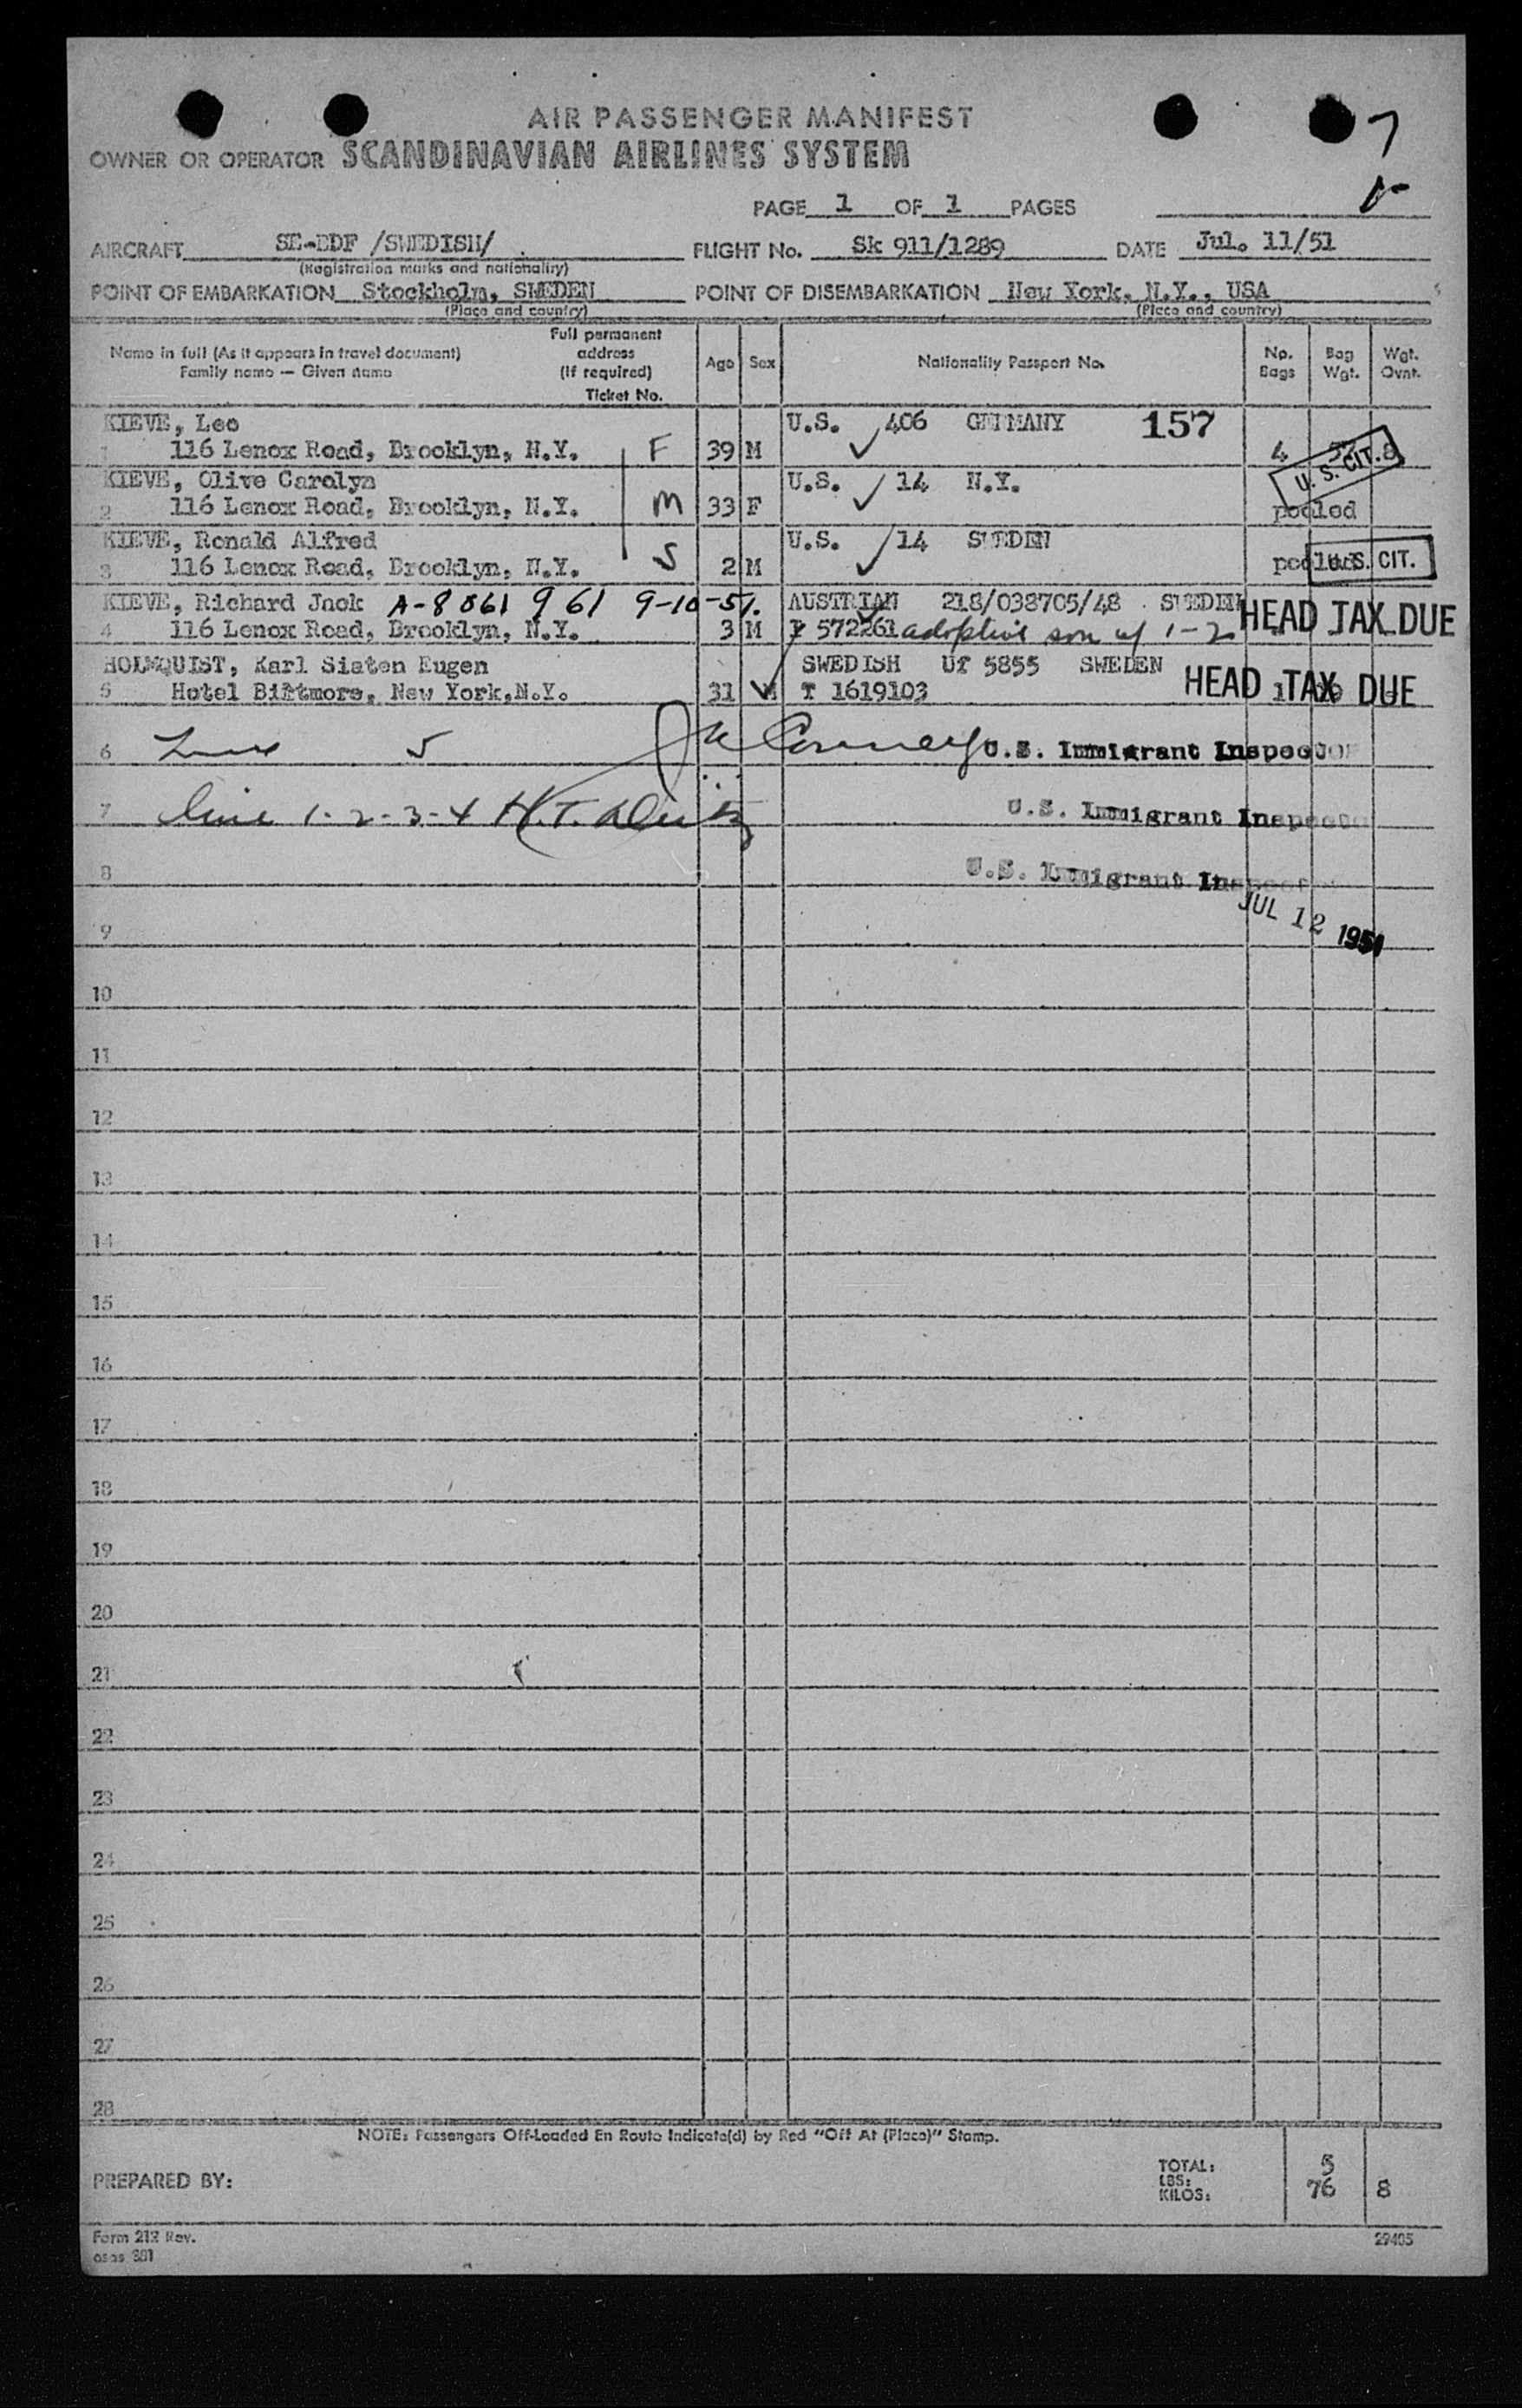 7
AIR PASSENGER MANIFEST
OWNER OR OPERATOR SCANDINAVIAN AIRLINES SYSTEM
PAGE 1 OF 1 PAGES
AIRCRAFT SE-BDF /SWEDISH/ FLIGHT No. Sk 911/1289 DATE Jul. 11/51
(Registration marks and nationality)
POINT OF EMBARKATION Stockholm, SWEDEN POINT OF DISEMBARKATION New York, N.Y., USA
(Place and country) (Place and country)
Name in full (As it appears in travel document) Family name — Given name Full permanent address (If required) Ticket No. Age Sex Nationality Passport No. No. Bags Bag Wgt. Wgt. Ovnt.
KIEVE, Leo U.S. 406 GERMANY 157
1 116 Lenox Road, Brooklyn, N.Y. F 39 M 4 U. S. CIT. 8
KIEVE, Olive Carolyn U.S. 14 N.Y.
2 116 Lenox Road, Brooklyn, N.Y. M 33 F pooled
KIEVE, Ronald Alfred U.S. 14 SWEDEN
3 116 Lenox Road, Brooklyn, N.Y. S 2 M pooled U.S. CIT.
KIEVE, Richard Jack A-8 061 961 9-10-51. AUSTRIAN 218/038705/48 SWEDEN HEAD TAX DUE
4 116 Lenox Road, Brooklyn, N.Y. 3 M 572261 adoptive son of 1-2
HOLMQUIST, Karl Sixten Eugen SWEDISH Uf 5855 SWEDEN HEAD TAX DUE
5 Hotel Biltmore, New York, N.Y. 31 M T 1619103 1
6 Line 5 U.S. Immigrant Inspector
7 line 1-2-3-4 U.S. Immigrant Inspector
8 U.S. Immigrant Inspector
JUL 12 1951
9
10
11
12
13
14
15
16
17
18
19
20
21
22
23
24
25
26
27
28
NOTE: Passengers Off-Loaded En Route Indicate(d) by Red "Off At (Place)" Stamp.
PREPARED BY: TOTAL: 5
LBS:
KILOS: 76 8
Form 212 Rev.
29405